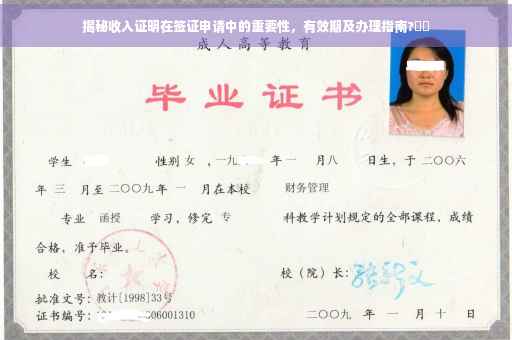 揭秘收入证明在签证申请中的重要性，有效期及办理指南?
成人高等教育
毕业证书
学生 性别 女 ，一九 年 一 月八 日生，于 二〇〇六
年 三 月至 二〇〇九 年 一 月在本校 财务管理
专业 函授 学习，修完 专 科教学计划规定的全部课程，成绩
合格，准予毕业。
校 名： 校（院）长：
批准文号：教计[1998]33号
证书编号： 06001310 二〇〇九 年 一 月 十 日